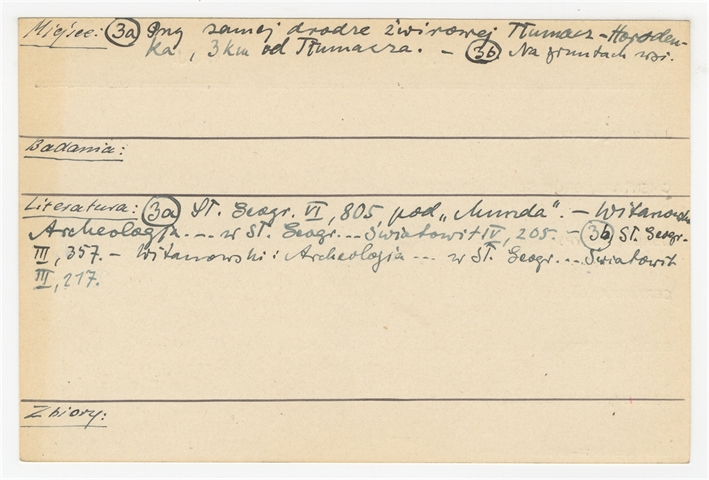 Miejsce: (3a) Przy samej drodze żwirowej Tłumacz-Horoden-
ka, 3 km od Tłumacza. - (3b) Na gruntach wsi.
Badania:
Literatura: (3a) Sł. Geogr. VI, 805, pod „Munda". - Witanowski
Archeologja... w Sł. Geogr... Światowit IV, 205. - (3b) Sł. Geogr.
III, 357. - Witanowski: Archeologja ... w Sł. Geogr... Światowit
III, 217.
Zbiory: